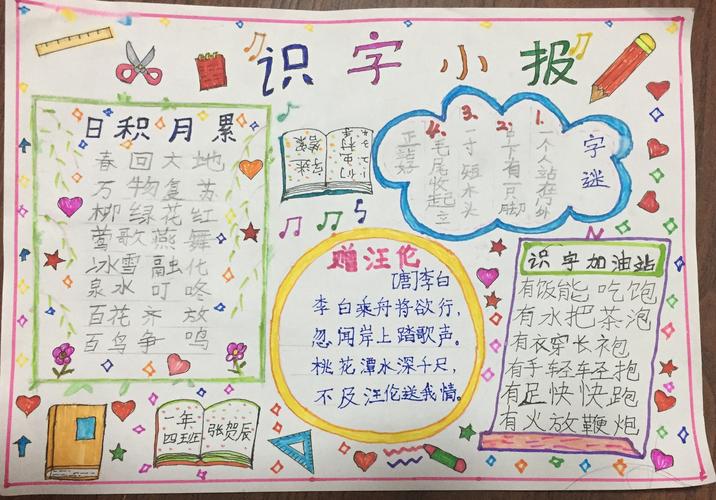 识字小报
日积月累
春回大地
万物复苏
柳绿花红
莺歌燕舞
冰雪融化
泉水叮咚
百花齐放
百鸟争鸣
字迷
答案
字迷
1. 一个人站在门外
2. 下有一只脚
3. 一寸短木头
4. 毛尾收起立
正站好
赠汪伦
[唐]李白
李白乘舟将欲行,
忽闻岸上踏歌声。
桃花潭水深千尺,
不及汪伦送我情。
识字加油站
有饭能吃饱
有水把茶泡
有衣穿长袍
有手轻轻抱
有足快快跑
有火放鞭炮
一年
四班
张贺辰